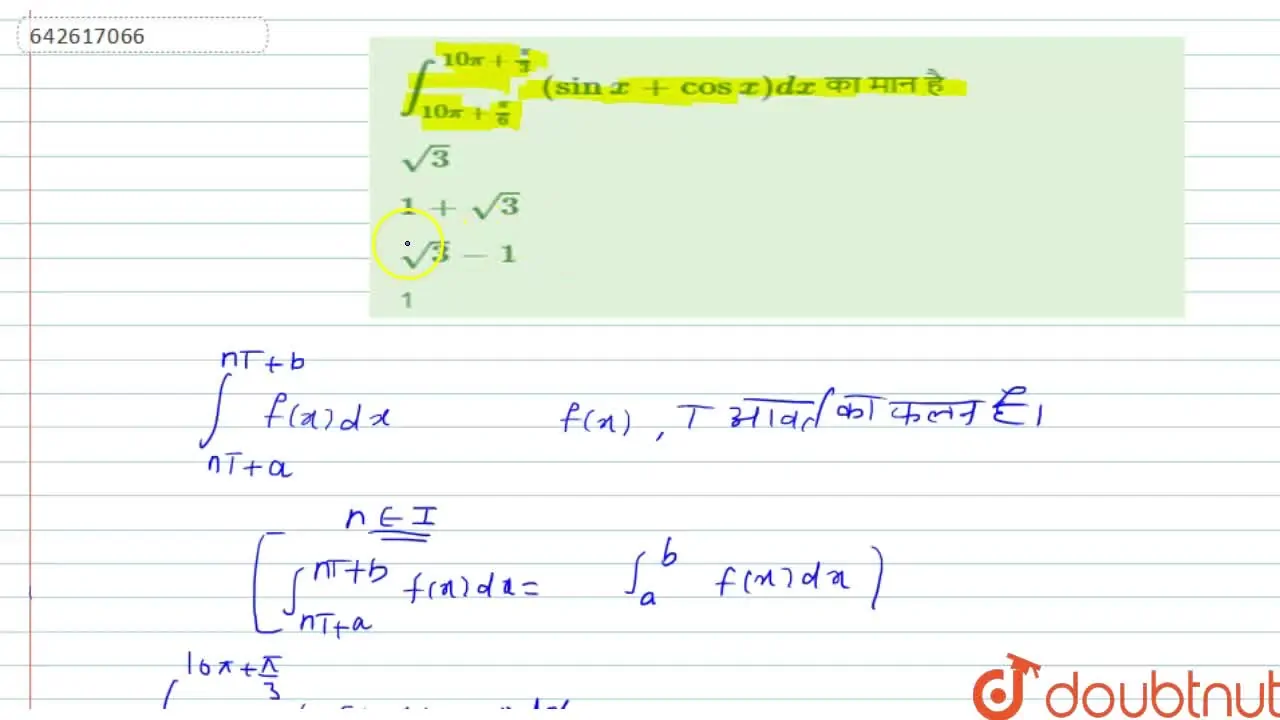 642617066
∫_{10π + π/6}^{10π + π/3} (sin x + cos x)dx का मान है
√3
1 + √3
√3 − 1
1
∫_{nT+a}^{nT+b} f(x)dx f(x), T आवर्त का फलन है।
n ∈ I
[∫_{nT+a}^{nT+b} f(x)dx = ∫_a^b f(x)dx)
10π + π/3
doubtnut